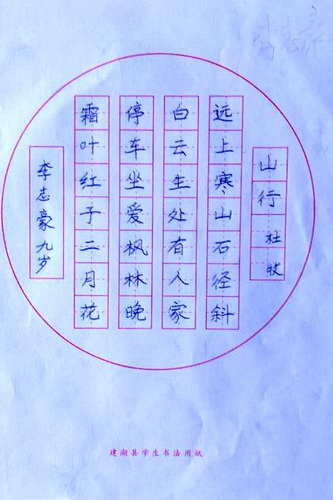 山行 杜牧
远上寒山石径斜
白云生处有人家
停车坐爱枫林晚
霜叶红于二月花
李志豪九岁
建湖县学生书法用纸